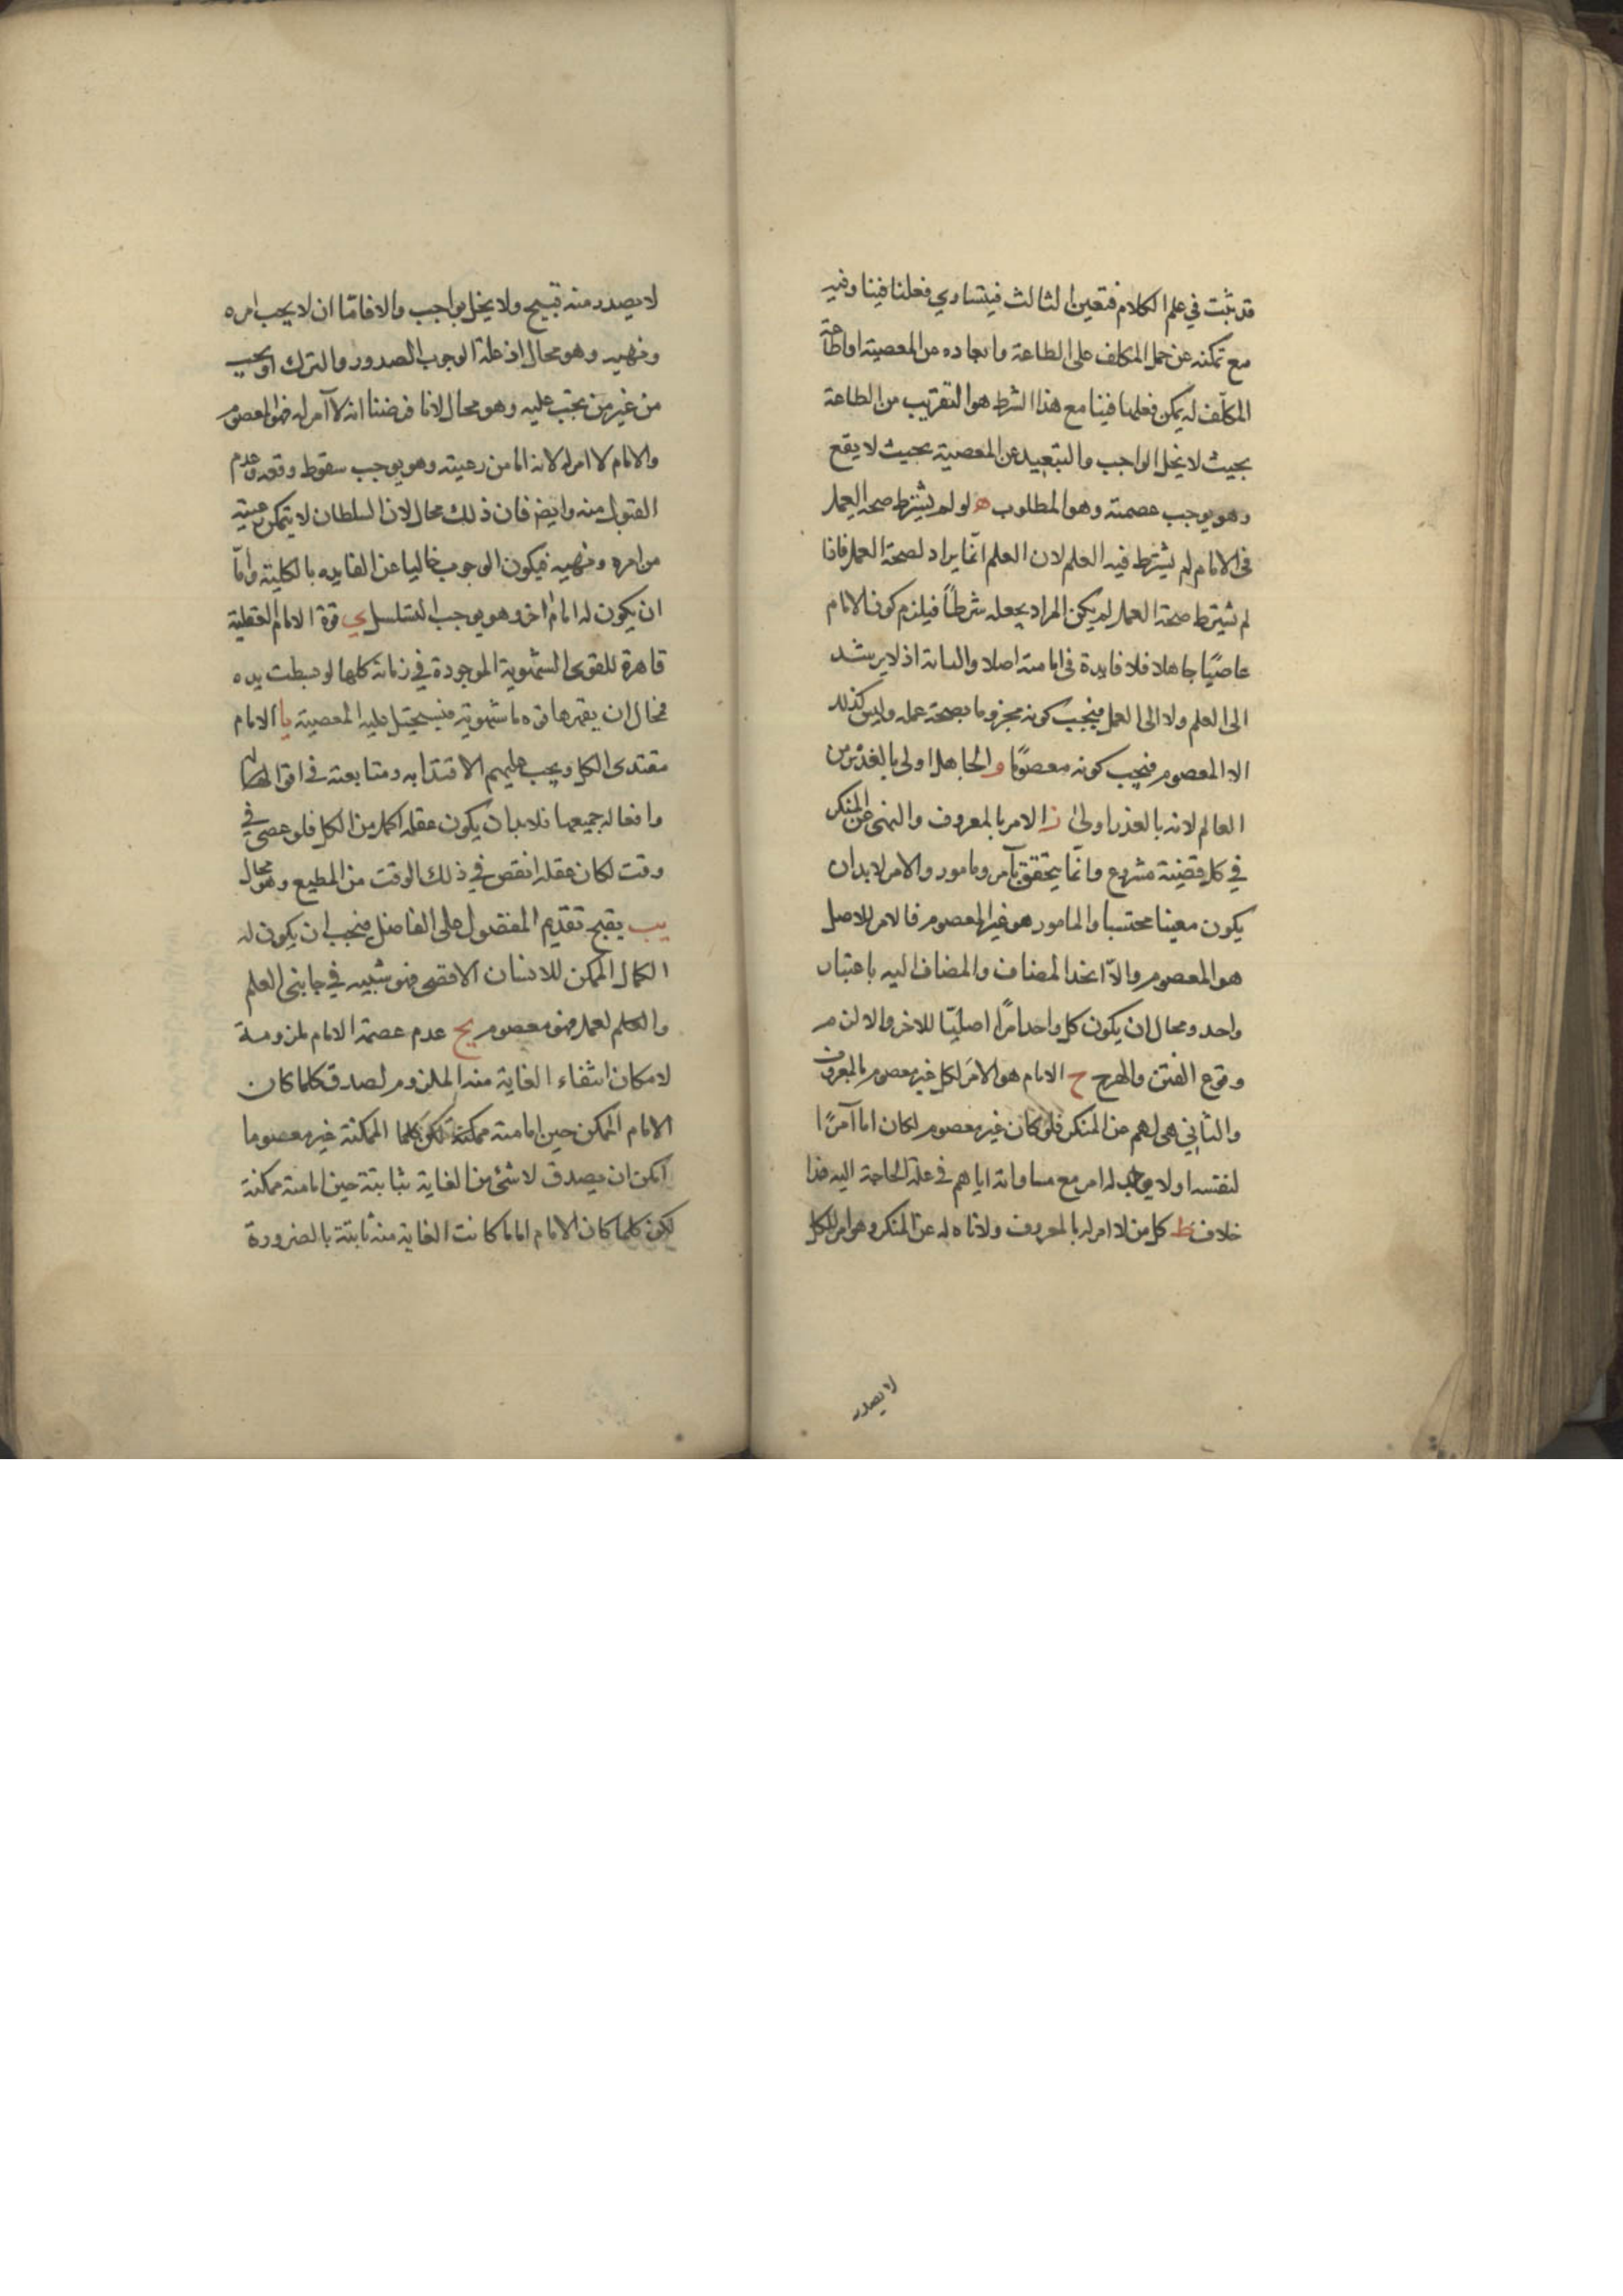 قد ثبت في علم الكلام فتعين الثالث فيتساوي فعلنا فينا وفيه
مع تمكنه عن حمل المكلف على الطاعة وابعاده عن المعصية اواطاعة
المكلف له يمكن فعلها فينا مع هذا الشرط هو التقريب من الطاعة
بحيث لا يخل الواجب والتبعيد عن المعصية بحيث لا يقع
وهو يوجب عصمته وهو المطلوب ه لو لم يشترط صحة العمل
فى الامام لم يشترط فيه العلم لان العلم انما يراد لصحة العمل فاذا
لم يشترط صحة العمل لم يكن المراد بجعله شرطاً فيلزم كون الامام
عاصيًا جاهلا فلا فايدة فى امامته اصلا والبتة اذ لا يرشد
الى العلم ولا الى العمل فيجب كونه مجزوما بصحة عمله وليس كذلك
الا المعصوم فيجب كونه معصومًا و الجاهل اولى بالعذر من
العالم لانه بالعذر اولى ز الامر بالمعروف والنهى عن المنكر
في كل قضية مشروع وانّما يتحقق بآمر ومامور والامر لا بدان
يكون معينا محتسبا والمامور هو غير المعصوم فالامر للاصل
هو المعصوم والاّ اتحد المضاف والمضاف اليه باعتبار
واحد ومحال ان يكون كل واحد امرًا اصليّا للاخر والا لزم
وقوع الفتن والهرج ح الامام هو الامر لكل غير معصوم بالمعروف
والثاني هى لهم عن المنكر فلو كان غير معصوم لكان اما آمرًا
لنفسه اولا يوجب له امر مع مساواته اياهم في علة الحاجة اليه هذا
خلاف ط كل من لا امر له بالمعروف ولا ناه له عن المنكر وهو امر للكل
لا يصدر
لا يصدر منه قبيح ولا يخل بواجب والا فامّا ان لا يجب امره
ونهيه وهو محال اذ علة الوجوب الصدور والترك او يجب
من غير من يجب عليه وهو محال لانا فرضنا انه لا آمر له فهو المعصوم
والامام لا امر له لانه اما من رعيته وهو يوجب سقوط وقعه وعدم
القبول منه وايضا فان ذلك محال لان السلطان لا يتمكن رعيته
من امره ونهيه فيكون الوجوب خاليا عن الفايده بالكلية وامّا
ان يكون له امام اخر وهو يوجب التسلسل ي قوة الامام العقلية
قاهرة للقوى الشهوية الموجودة في زمانه كلها لو بسطت يده
فمحال ان يقهرها قوه ما شهوية فيستحيل عليه المعصية يا الامام
مقتدى الكل ويجب عليهم الاقتدا به ومتابعته في اقواله
وافعاله جميعها فلابد ان يكون عقله اكمل من الكل فلو عصى في
وقت لكان عقله انقص في ذلك الوقت من المطيع وهو محال
يب يقبح تقديم المفضول على الفاضل فيجب ان يكون له
الكمال الممكن للانسان الاقصى فهو شبيه في جانبى العلم
والعلم لعمل فهو معصوم يج عدم عصمة الامام ملزومة
لامكان انتفاء الغاية منه الملزوم لصدق كلما كان
الامام الممكن حين امامته ممكنة لكن كلما الممكنة غير معصوما
امكن ان يصدق لا شئ من الغاية بثابتة حين امامته ممكنة
لكن كلما كان الامام اماما كانت الغاية منه ثابتة بالضرورة